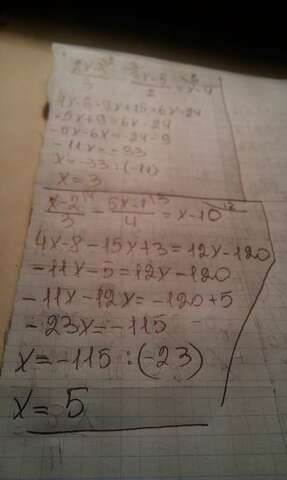 4x-6-9x+15=6x-24
-5x+9=6x-24
-5x-6x=-24-9
-11x=-33
x=-33:(-11)
x=3
x-2/3 - 5x-1/4 = x-10
4x-8-15x+3=12x-120
-11x-5=12x-120
-11x-12x=-120+5
-23x=-115
x=-115:(-23)
x=5